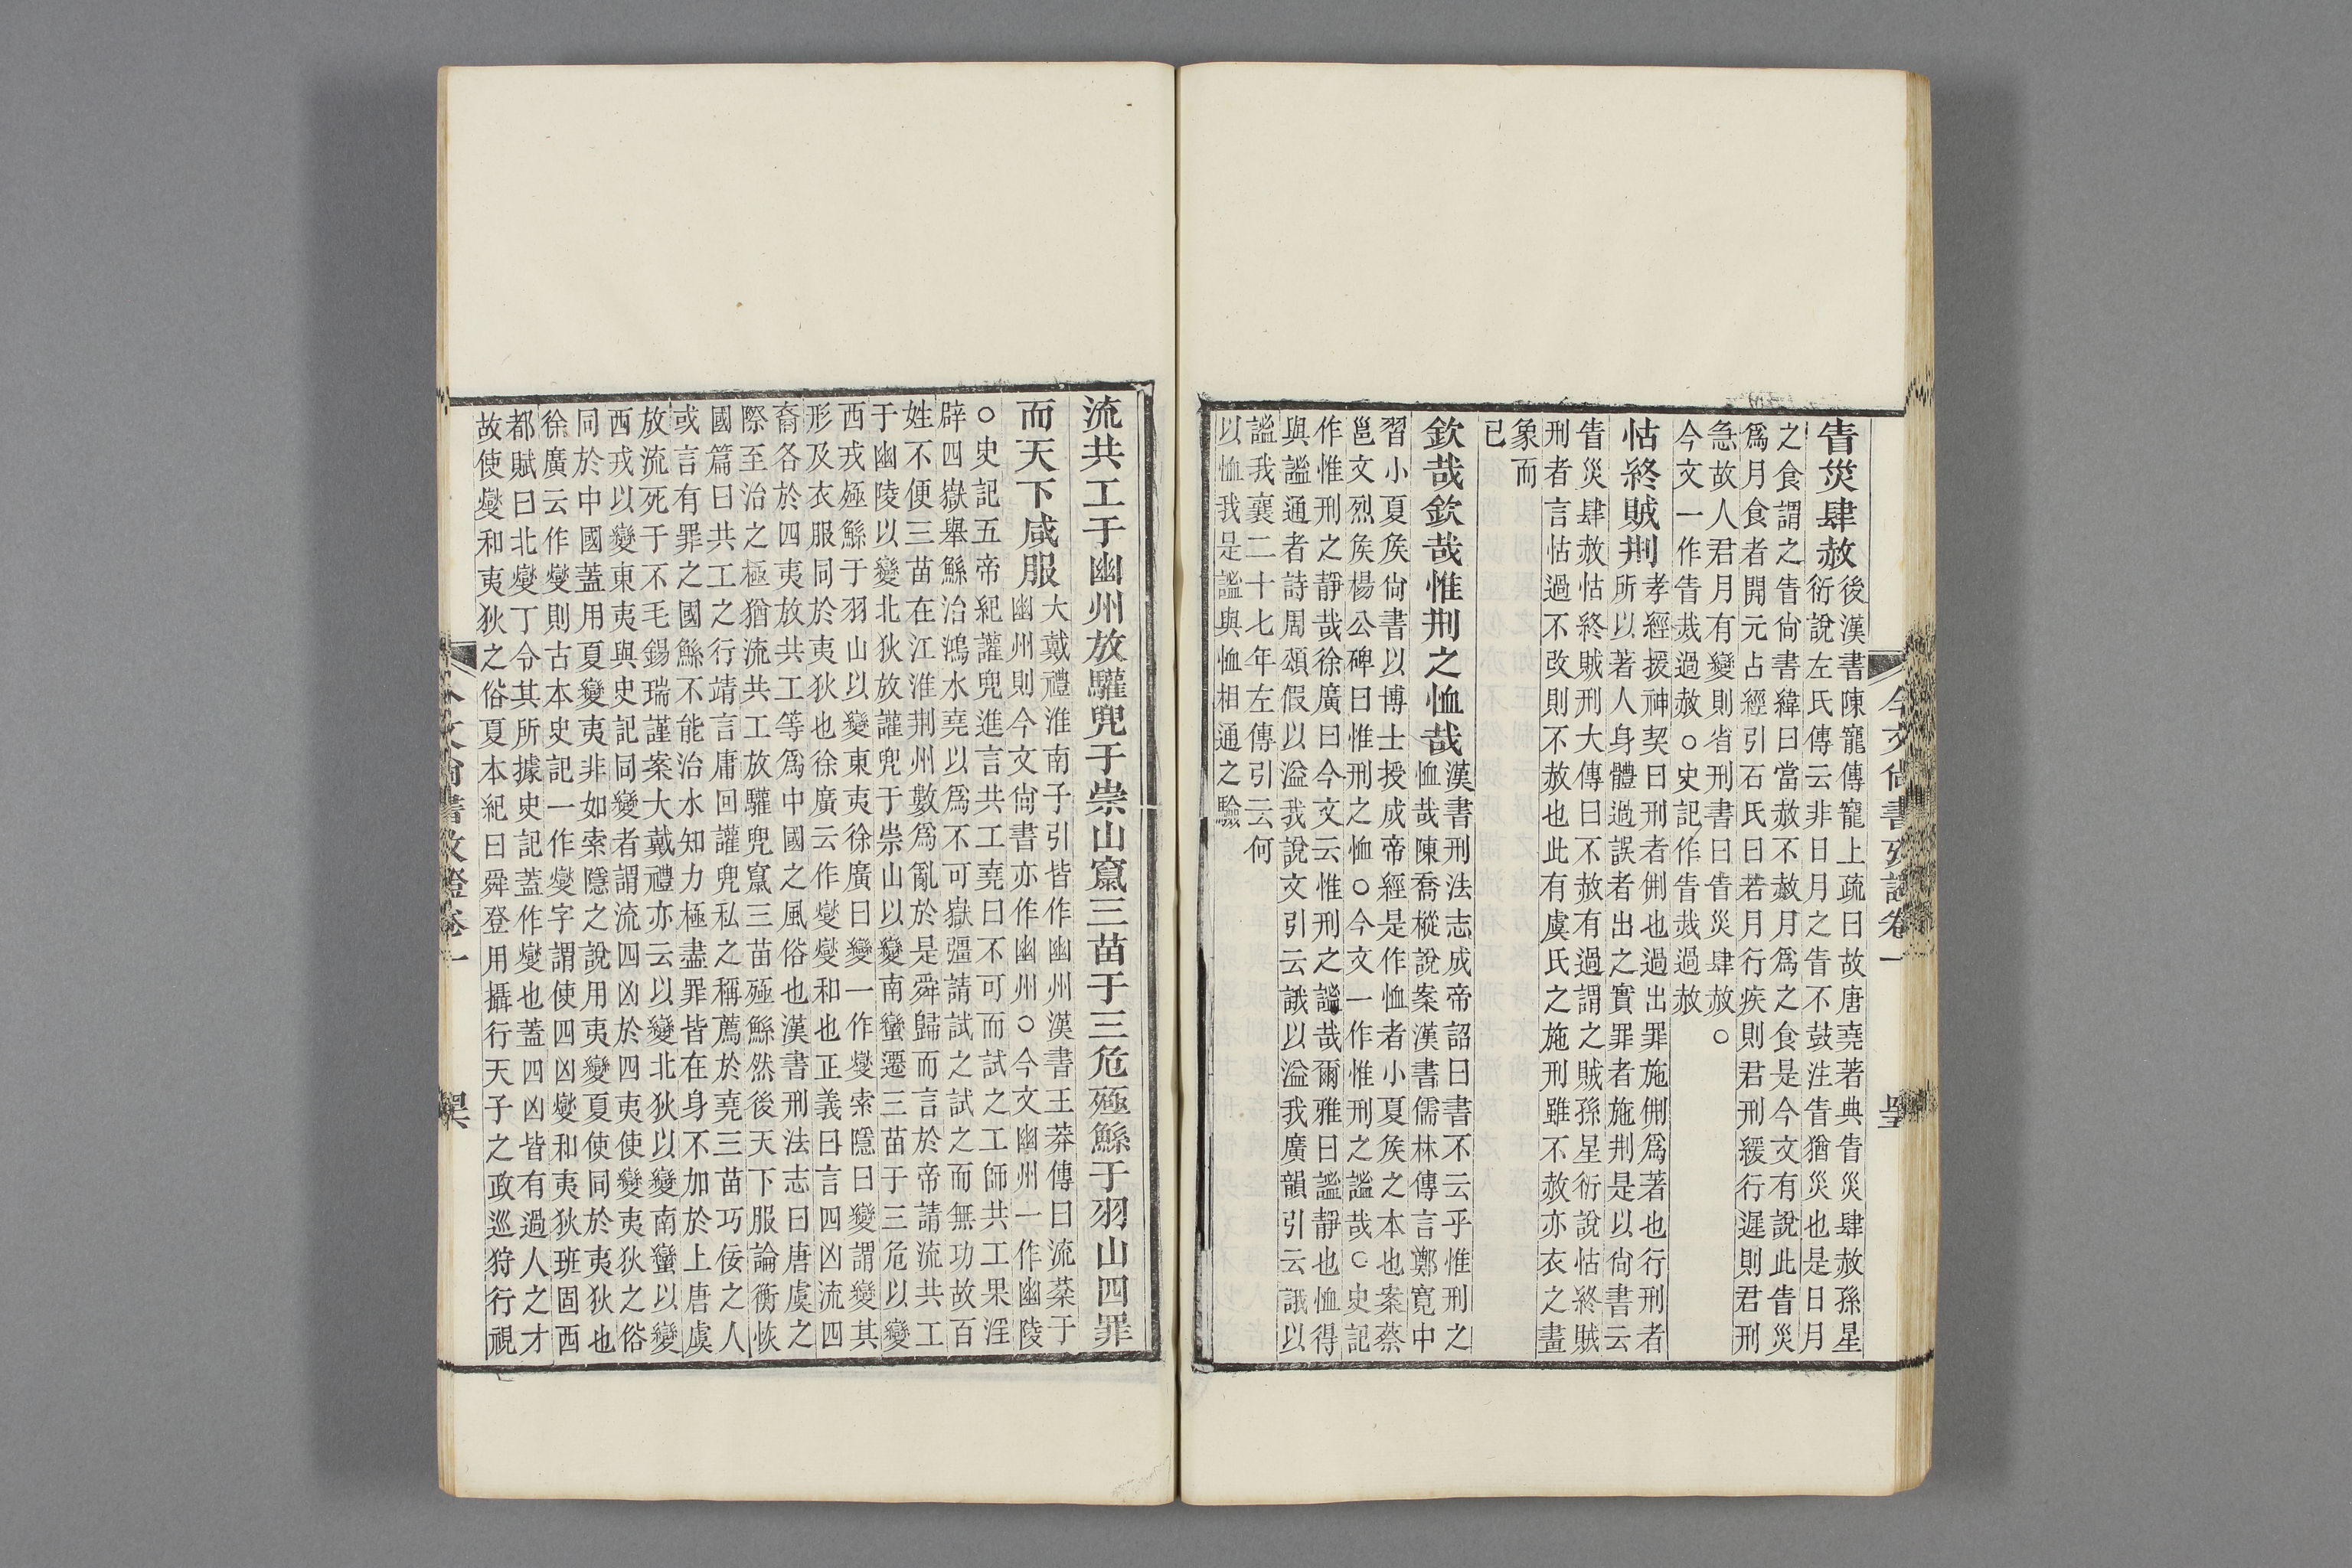 今文尚書攷證卷一
眚災肆赦後漢書陳寵傳寵上疏曰故唐堯著典眚災肆赦孫星
衍說左氏傳云非日月之眚不鼓注眚猶災也是日月
之食謂之眚尙書緯曰當赦不赦月爲之食是今文有說此眚災
爲月食者開元占經引石氏曰若月行疾則君刑緩行遲則君刑
急故人君月有變則省刑書曰眚災肆赦○
今文一作眚烖過赦○史記作眚烖過赦
怙終賊荆孝經援神契曰刑者侀也過出罪施侀爲著也行刑者
所以著人身體過誤者出之實罪者施荆是以尙書云
眚災肆赦怙終賊刑大傳曰不赦有過謂之賊孫星衍說怙終賊
刑者言怙過不改則不赦也此有虞氏之施刑雖不赦亦衣之畫
象而
已
欽哉欽哉惟荆之恤哉漢書刑法志成帝詔曰書不云乎惟刑之
恤哉陳喬樅說案漢書儒林傳言鄭寬中
習小夏矦尙書以博士授成帝經是作恤者小夏矦之本也案蔡
邕文烈矦楊公碑曰惟刑之恤○今文一作惟刑之謐哉○史記
作惟刑之靜哉徐廣曰今文云惟刑之謐哉爾雅曰謐靜也恤得
與謐通者詩周頌假以溢我說文引云誐以溢我廣韻引云誐以
謐我襄二十七年左傳引云何
以恤我是謐與恤相通之驗
流共工于幽州放驩兜于崇山竄三苗于三危殛鯀于羽山四罪
而天下咸服大戴禮淮南子引皆作幽州漢書王莽傳曰流棻于
幽州則今文尙書亦作幽州○今文幽州一作幽陵
○史記五帝紀讙兜進言共工堯曰不可而試之工師共工果淫
辟四嶽舉鯀治鴻水堯以爲不可嶽彊請試之試之而無功故百
姓不便三苗在江淮荆州數爲亂於是舜歸而言於帝請流共工
于幽陵以變北狄放讙兜于崇山以變南蠻遷三苗于三危以變
西戎殛鯀于羽山以變東夷徐廣曰變一作燮索隱曰變謂變其
形及衣服同於夷狄也徐廣云作燮燮和也正義曰言四凶流四
裔各於四夷放共工等爲中國之風俗也漢書刑法志曰唐虞之
際至治之極猶流共工放驩兜竄三苗殛鯀然後天下服論衡恢
國篇曰共工之行靖言庸回讙兜私之稱薦於堯三苗巧佞之人
或言有罪之國鯀不能治水知力極盡罪皆在身不加於上唐虞
放流死于不毛錫瑞謹案大戴禮亦云以變北狄以變南蠻以變
西戎以變東夷與史記同變者謂流四凶於四夷使變夷狄之俗
同於中國蓋用夏變夷非如索隱之說用夷變夏使同於夷狄也
徐廣云作燮則古本史記一作燮字謂使四凶燮和夷狄班固西
都賦曰北燮丁令其所據史記蓋作燮也蓋四凶皆有過人之才
故使燮和夷狄之俗夏本紀曰舜登用攝行天子之政巡狩行視
文尙書攷證卷一